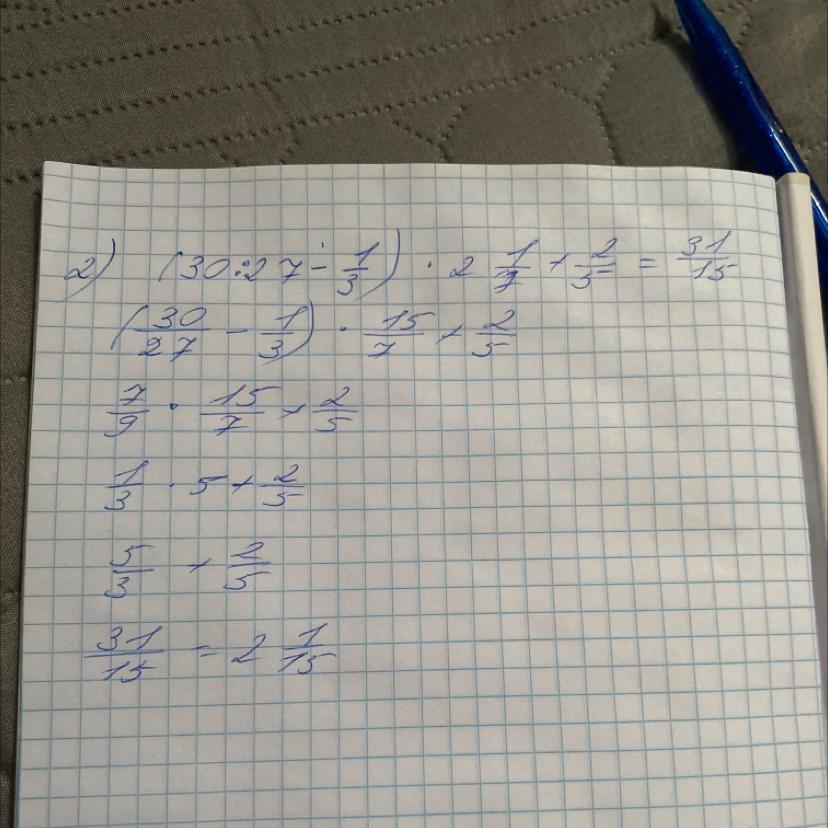 2) (30:27 - 1/3) · 2 1/7 + 2/5 = 31/15
(30/27 - 1/3) · 15/7 + 2/5
7/9 · 15/7 + 2/5
1/3 · 5 + 2/5
5/3 + 2/5
31/15 = 2 1/15